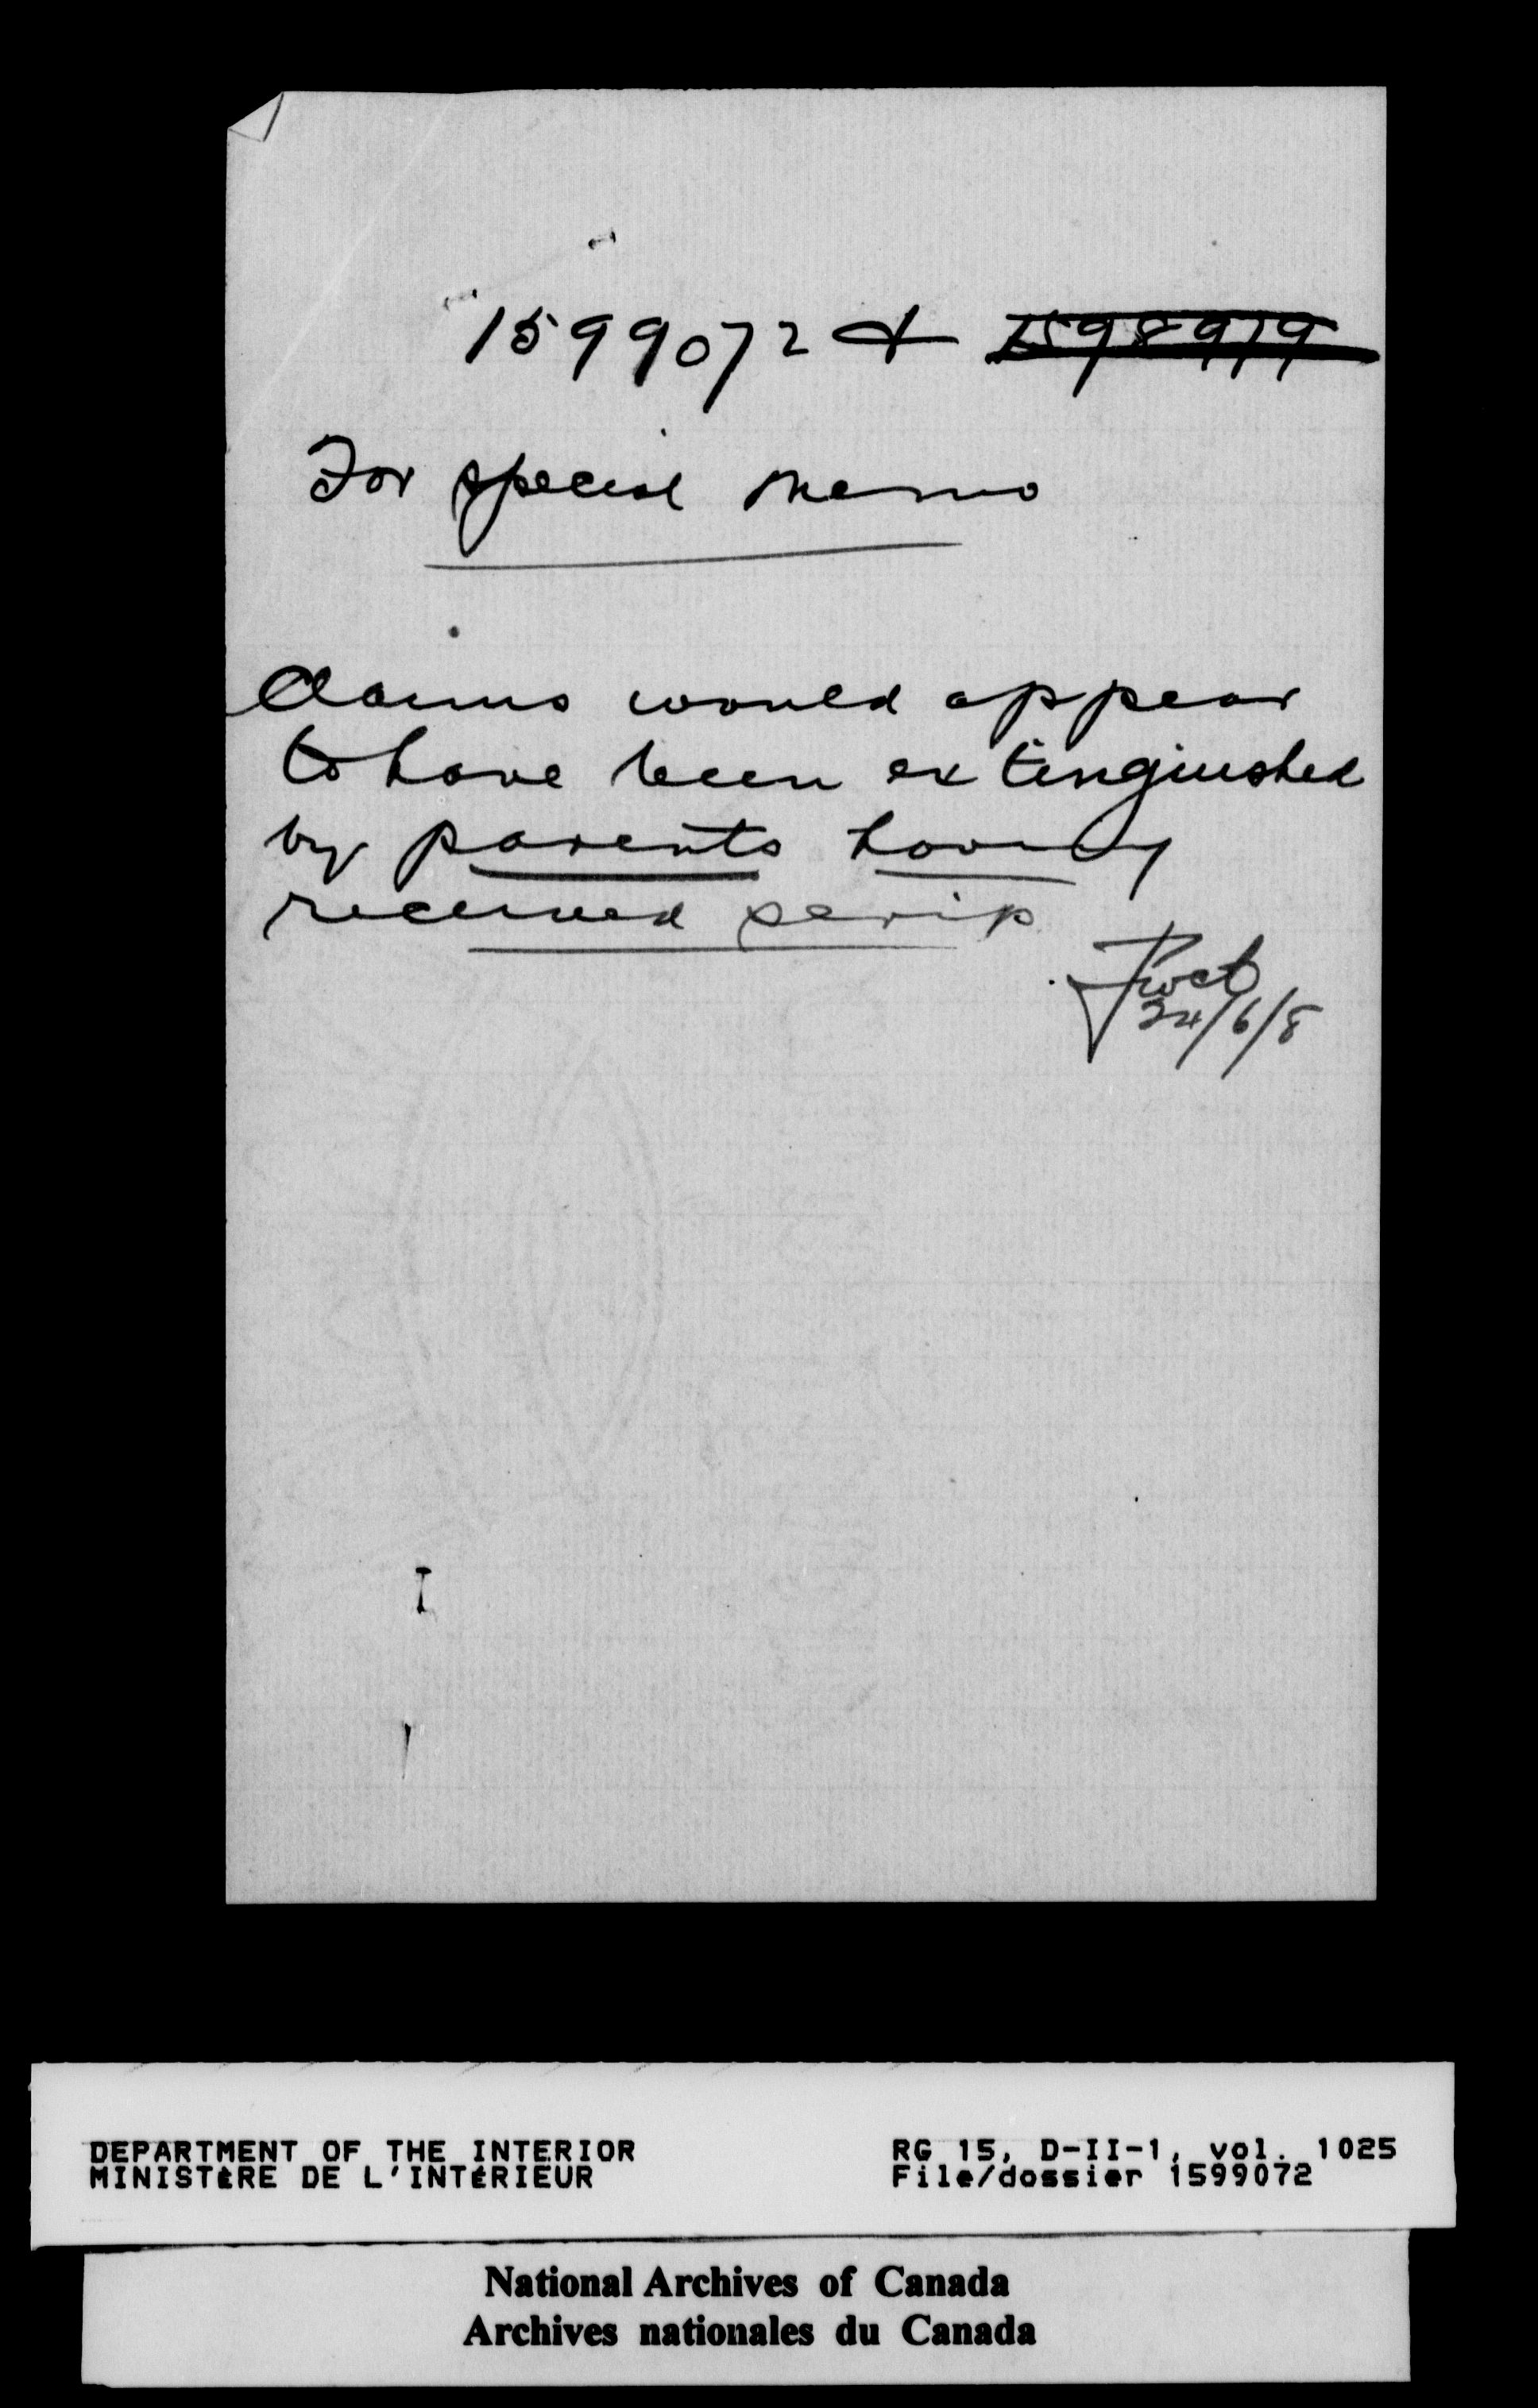 1599072 & 1598979
For special memo
Claims would appear
to have been extinguished
by parents having
received scrip
24/6/8
DEPARTMENT OF THE INTERIOR
MINISTÈRE DE L'INTÉRIEUR
RG 15, D-II-1, vol. 1025
File/dossier 1599072
National Archives of Canada
Archives nationales du Canada